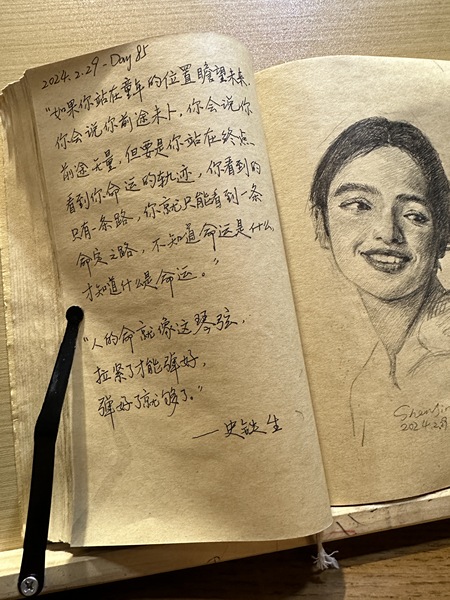 2024.2.29 - Day 85
"如果你站在童年的位置瞻望未来,
你会说你前途未卜,你会说你
前途无量,但要是你站在终点
看到你命运的轨迹,你看到的
只有一条路,你就只能看到一条
命定之路,不知道命运是什么,
才知道什么是命运。"
"人的命就像这琴弦,
拉紧了才能弹好,
弹好了就够了。"
—史铁生
2024.2.29